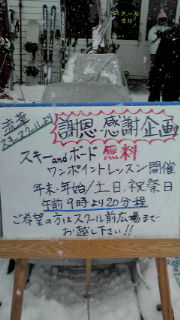 斎華
スキースクールより
謝恩・感謝企画
スキーandボード 無料
ワンポイントレッスン開催
年末・年始/土日・祝祭日
午前9時より20分程
ご希望の方はスクール前広場まで
お越し下さい!!